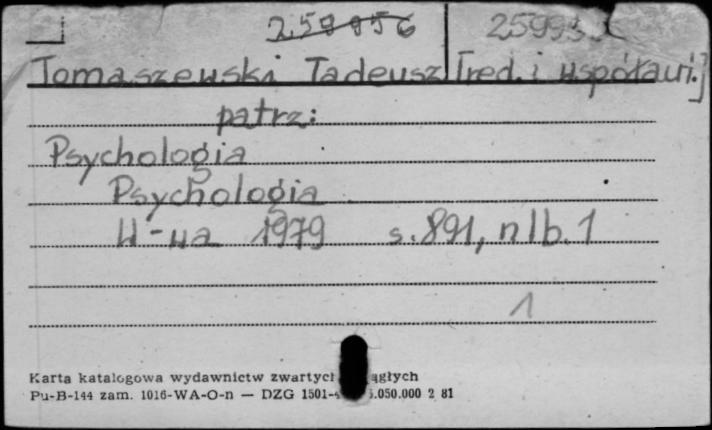 259956
Tomaszewski Tadeusz [red. i współaut.]
patrz:
Psychologia
Psychologia
W-wa 1979 s. 891, nlb. 1
1
Karta katalogowa wydawnictw zwartych
Pu-B-144 zam. 1016-WA-O-n — DZG 1501- .050.000 2 81